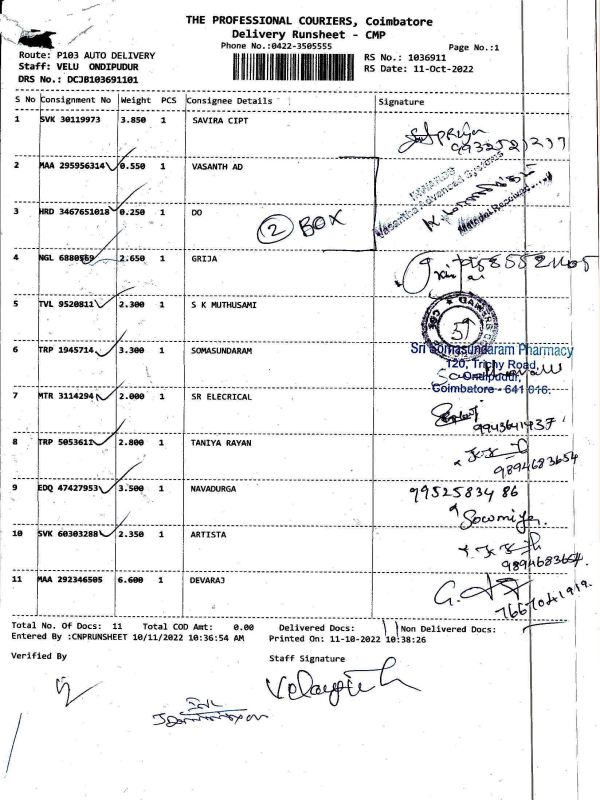 THE PROFESSIONAL COURIERS, Coimbatore
Delivery Runsheet - CMP
Phone No.:0422-3505555 Page No.:1
Route: P103 AUTO DELIVERY RS No.: 1036911
Staff: VELU ONDIPUDUR RS Date: 11-Oct-2022
DRS No.: DCJB103691101
S No Consignment No Weight PCS Consignee Details Signature
1 SVK 30119973 3.850 1 SAVIRA CIPT
2 MAA 295956314 0.550 1 VASANTH AD
Vasantha Advanced Systems
Material Received
3 HRD 3467651018 0.250 1 DO 2 BOX
4 NGL 6880569 2.650 1 GRIJA
5 TVL 9520811 2.300 1 S K MUTHUSAMI
6 TRP 1945714 3.300 1 SOMASUNDARAM
Sri Somasundaram Pharmacy
120, Trichy Road,
Ondipudur,
Coimbatore - 641 016.
7 MTR 3114294 2.000 1 SR ELECRICAL
9943641937
8 TRP 5053611 2.800 1 TANIYA RAYAN
9894683654
9 EDQ 47427953 3.500 1 NAVADURGA 9952583486
Sowmiya.
10 SVK 60303288 2.350 1 ARTISTA
9894683654
11 MAA 292346505 6.600 1 DEVARAJ
7667041919
Total No. Of Docs: 11 Total COD Amt: 0.00 Delivered Docs: 11 Non Delivered Docs:
Entered By :CNPRUNSHEET 10/11/2022 10:36:54 AM Printed On: 11-10-2022 10:38:26
Verified By Staff Signature